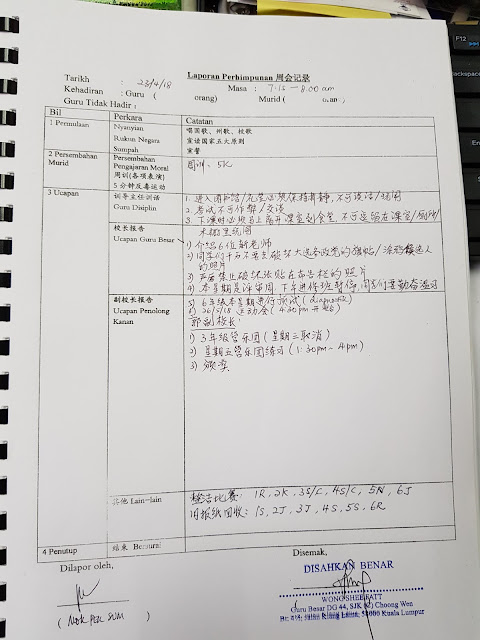 Laporan Perhimpunan 周会记录
Tarikh : 23/4/18 Masa : 7.15 — 8.00 am
Kehadiran : Guru ( orang) Murid ( orang )
Guru Tidak Hadir :
Bil Perkara Catatan
1 Permulaan Nyanyian 唱国歌、州歌、校歌
Rukun Negara 宣读国家五大原则
Sumpah 宣誓
2 Persembahan Murid Persembahan Pengajaran Moral 周训(各项表演) 周训:5K
5 分钟反毒运动
3 Ucapan 训导主任训话 1. 进入图书馆/礼堂必须保持肃静,不可谈话/玩闹
Guru Disiplin 2. 考试不可作弊/交谈
3. 下课时必须马上离开课室到食堂,不可逗留在课室/厕所/
木棚里玩闹
校长报告
Ucapan Guru Besar 1) 介绍6位新老师
2) 同学们千万不要去破坏大选各政党的旗帜/涂鸦候选人
的照片
3) 严禁破坏张贴在布告栏的照片
4) 本星期是评审周,下午进修班暂停,同学们要勤奋温习
副校长报告 5) 6年级本星期进行预试 (diagnostic)
Ucapan Penolong Kanan 6) 运动会 (4.30pm
郭副校长:
1) 3年级管乐团 (星期三取消)
2) 星期五管乐团练习 (1.30pm ~ 4pm)
3) 颁奖
其他 Lain-lain 整洁比赛: 1R, 2K, 3S/C, 4S/C, 5N, 6J
旧报纸回收: 1S, 2J, 3J, 4S, 5S, 6R
4 Penutup 结束 Bersurai
Dilapor oleh, Disemak,
DISAHKAN BENAR
WONG SHEE FATT
Guru Besar DG 44, SJK (C) Choong Wen
Kuala Lumpur